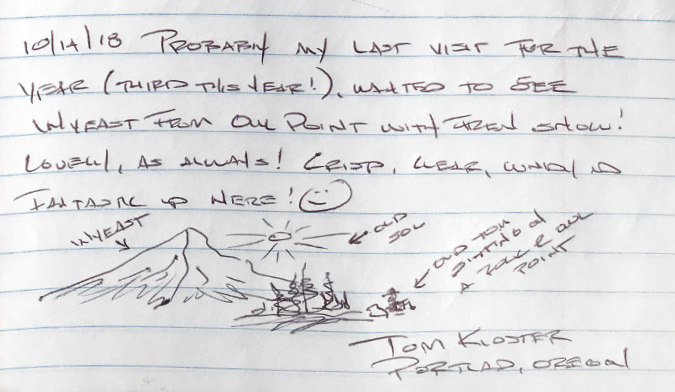 10/14/18 PROBABLY MY LAST VISIT FOR THE
YEAR (THIRD THIS YEAR!), WANTED TO SEE
WYEAST FROM OWL POINT WITH FRESH SNOW!
LOVELY, AS ALWAYS! CRISP, CLEAR, WINDY AND
FANTASTIC UP HERE!
WYEAST
OLD SOL
OLD TOM
SITTING ON
A ROCK @ OWL
POINT
TOM KLOSTER
PORTLAND, OREGON